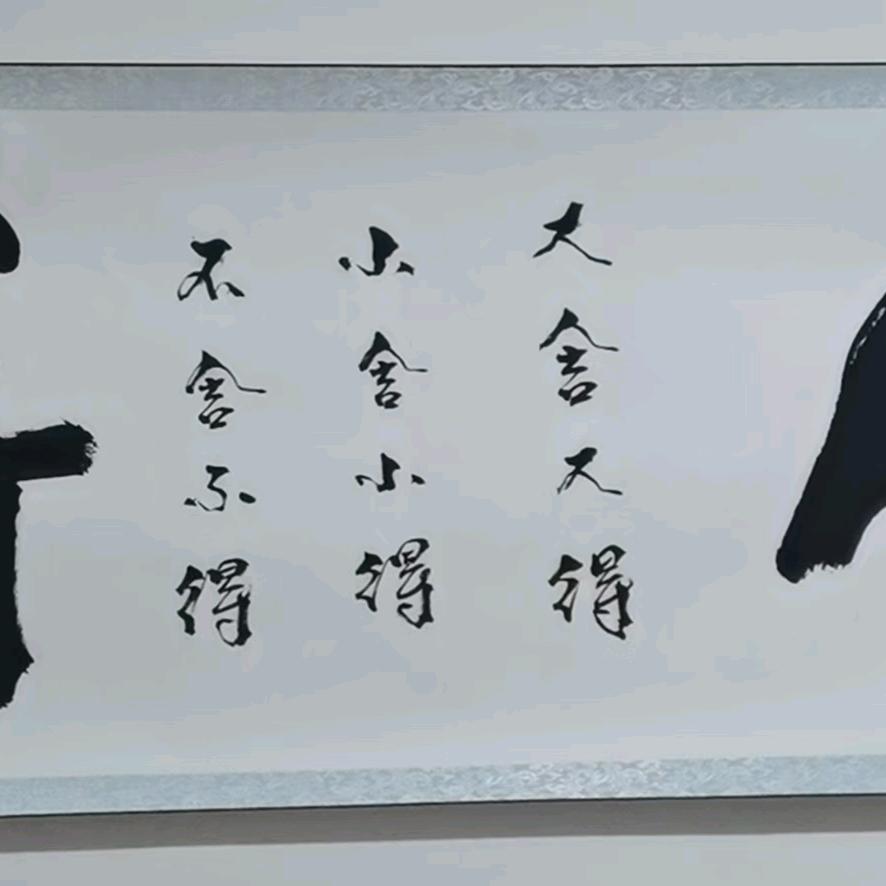 大舍大得
小舍小得
不舍不得